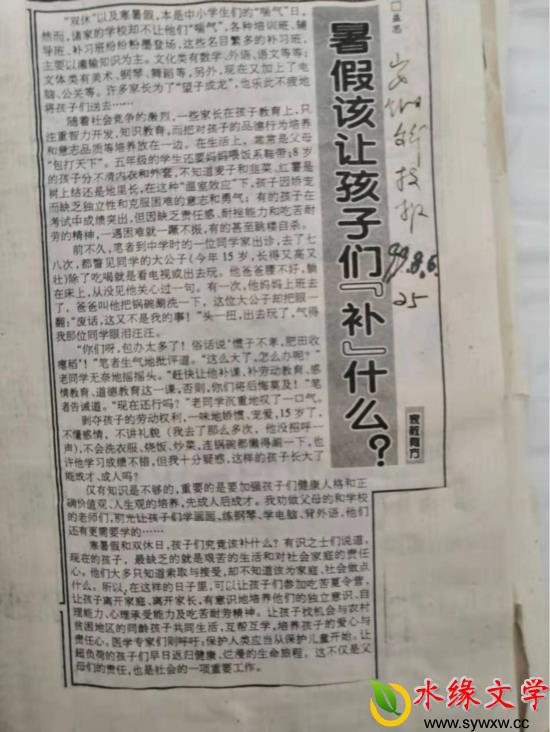 暑假该让孩子们『补』什么？
□盂思
家教有方
99.8.6.
25
“双休”以及寒暑假，本是中小学生们的“喘气”日，
然而，诸家的学校却不让他们“喘气”，各种培训班、辅
导班、补习班纷纷粉墨登场，这些名目繁多的补习班，
主要以灌输知识为主。文化类有数学、外语、语文等等；
文体类有美术、钢琴、舞蹈等，另外，现在又加上了电
脑、公关等。许多家长为了“望子成龙”，也乐此不疲地
将孩子们送去……
随着社会竞争的激烈，一些家长在孩子教育上，只
注重智力开发，知识教育，而把对孩子的品德行为培养
和意志品质等培养放在一边。在生活上，常常是父母
“包打天下”。五年级的学生还要妈妈喂饭系鞋带；8岁
的孩子分不清内衣和外套，不知道麦子和韭菜、红薯是
树上结还是地里长，在这种“温室效应”下，孩子因娇宠
而缺乏独立性和克服困难的意志和勇气；有的孩子在
考试中成绩突出，但因缺乏责任感、耐挫能力和吃苦耐
劳的精神，一遇困难就一蹶不振，有的甚至跳楼自杀。
前不久，笔者到中学时的一位同学家出诊，去了七
八次，都瞥见同学的大公子（今年15岁，长得又高又
壮）除了吃喝就是看电视或出去玩，他爸爸腰不好，躺
在床上，从没见他关心过一句。有一次，他妈妈上班去
了，爸爸叫他把锅碗涮洗一下，这位大公子却把眼一
翻：“废话，这又不是我的事！”头一扭，出去玩了，气得
我那位同学眼泪汪汪。
“你们呀，包办太多了！俗话说‘惯子不孝，肥田收
瘪稻’！”笔者生气地批评道。“这么大了，怎么办呢？”
老同学无奈地摇摇头。“赶快让他补课，补劳动教育、感
情教育、道德教育这一课，否则，你们将后悔莫及！”笔
者告诫道。“现在还行吗？”老同学沉重地叹了一口气。
剥夺孩子的劳动权利，一味地娇惯，宠爱，15岁了，
不懂感情，不讲礼貌（我去了那么多次，他没招呼一
声），不会洗衣服、烧饭、炒菜，连锅碗都懒得涮一下，也
许他学习成绩不错，但我十分疑惑，这样的孩子长大了
能成才、成人吗？
仅有知识是不够的，重要的是要加强孩子们健康人格和正
确价值观、人生观的培养，先成人后成才。我劝做父母的和学校
的老师们，别光让孩子们学画画、练钢琴、学电脑、背外语，他们
还有更需要学的……
寒暑假和双休日，孩子们究竟该补什么？有识之士们说道，
现在的孩子，最缺乏的就是艰苦的生活和对社会家庭的责任
心。他们大多只知道索取与接受，却不知道该为家庭、社会做点
什么。所以，在这样的日子里，可以让孩子们参加吃苦夏令营，
让孩子离开家庭、离开家长，有意识地培养他们的独立意识、自
理能力、心理承受能力及吃苦耐劳精神。让孩子找机会与农村
贫困地区的同龄孩子共同生活，互帮互学，培养孩子的爱心与
责任心。医学专家们则呼吁：保护人类应当从保护儿童开始。让
超负荷的孩子们早日返归健康、烂漫的生命旅程，这不仅是父
母们的责任，也是社会的一项重要工作。
水缘文学
www.sywxw.cc